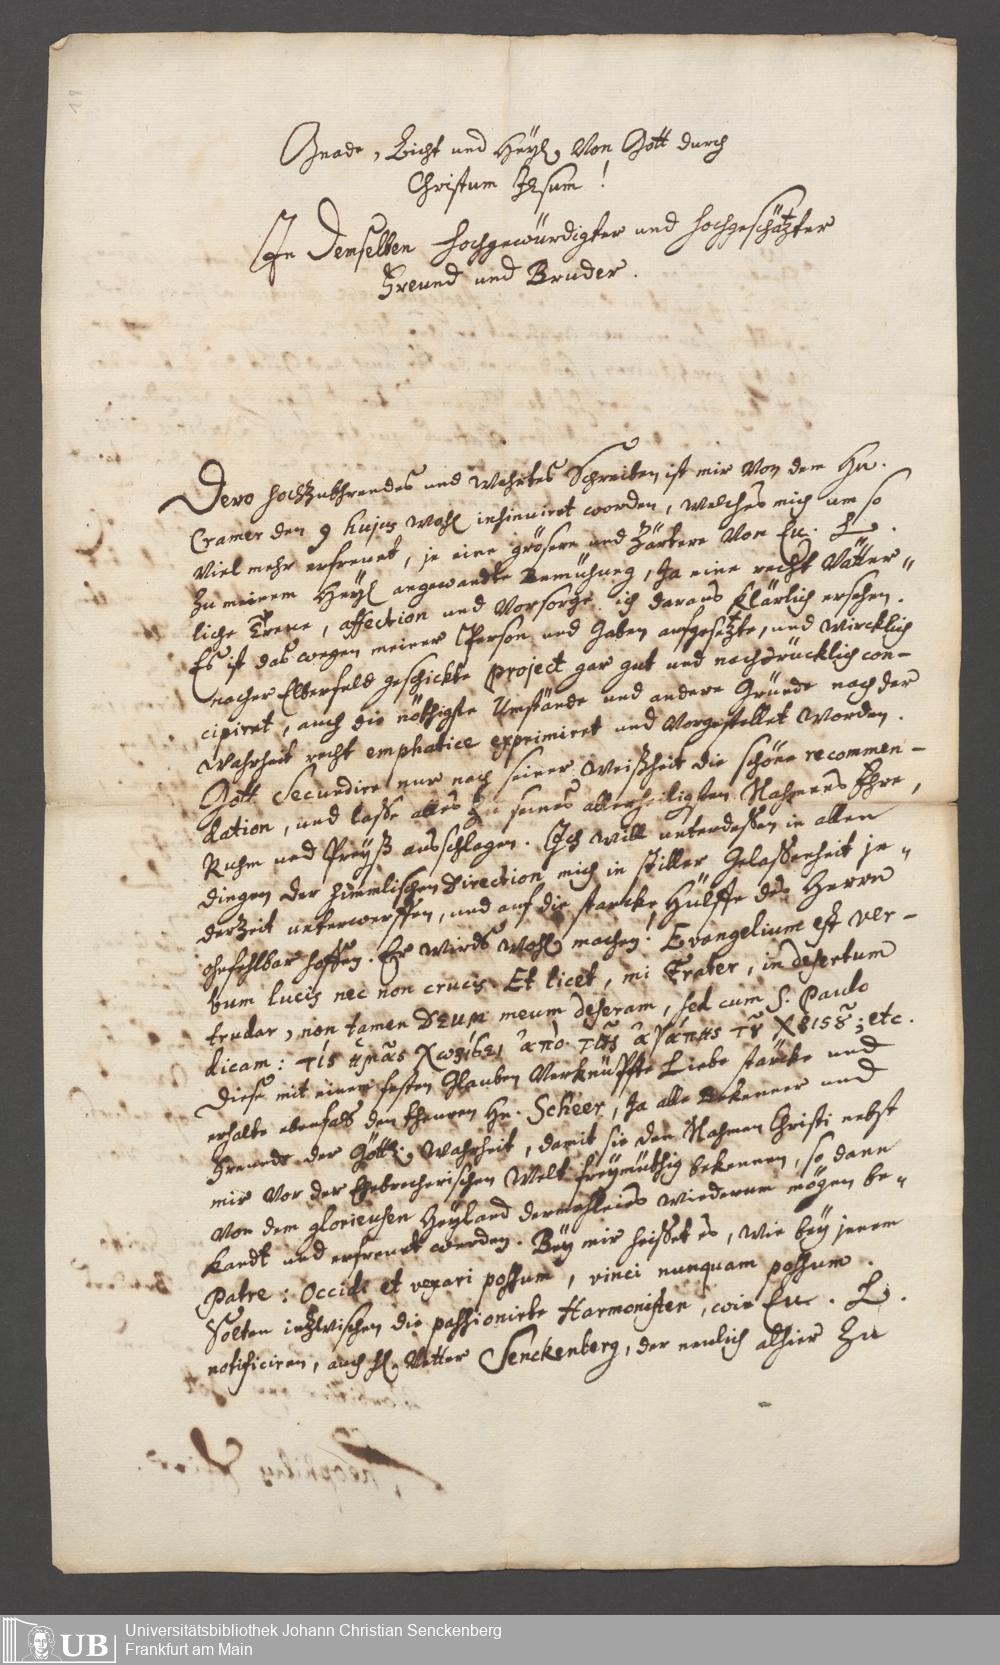 18
Gnade, Licht und Heyl, Von Gott durch
Christum JEsum!
In Demselben Hochgewürdigter und Hochgeschätzter
Freund und Bruder.
Dero HochZuEhrendes und Wehrtes Schreiben ist mir Von dem Hn.
Cramer den 9 hujus Wohl insinuiret worden, Welches mich um so
Viel mehr erfreuet, je eine grösere und Zärtere Von Eu. L.
Zu meinem Heyl angewandte Bemühung, Ja eine recht Vätter„
liche Treue, affection und Vorsorge ich daraus klärlich ersehen.
Es ist das wegen meiner Person und Gaben aufgesetzte, und Wircklich
nacher Elberfeld geschickte project gar gut und nachdrücklich con-
cipiret, auch die nöthigste Umstände und andere Gründe nach der
Wahrheit recht emphatice exprimiret und Vorgestellet Worden.
Gott Secundire nur nach seiner Weißheit die schöne recommen-
dation, und lasse alles Zu seines allerheiligsten Nahmens Ehre,
Ruhm und Preyß ausschlagen. Ich will unterdessen in allen
dingen der himmlischen Direction mich in stiller Gelassenheit je„
derZeit unterwerffen, und auf die starcke Hülffe des Herrn
ohnfehlbar hoffen. Er wirds Wohl machen! Evangelium est ver-
bum lucis nec non crucis. Et licet, mi Frater, in desertum
trudar, non tamen DEUM meum deseram, sed cum S. Paulo
dicam: τίς ἡμᾶς χωρίσει ἀπὸ τῆς ἀγάπης τȣ͂ Χριστȣ͂; etc.
Diese mit einem festen Glauben Verknüpffte Liebe stärcke und
erhalte ebenfals den theuren Hn. Scheer, Ja alle Bekenner und
Freunde der Göttl. Wahrheit, damit sie den Nahmen Christi nebst
mir Vor der Ehebrecherischen Welt freymüthig bekennen, so dann
Von dem glorieusen Heyland dermahleins wiederum mögen be„
kandt und erfreuet werden. Bey mir heisset es, Wie bey jenem
Patre: Occidi et vexari possum, vinci nunquam possum.
Solten inZwischen die passionirte Harmonisten, wie Eu. L.
notificiren, auch H. Vetter Senckenberg, der neulich alhier Zu
UB
Universitätsbibliothek Johann Christian Senckenberg
Frankfurt am Main